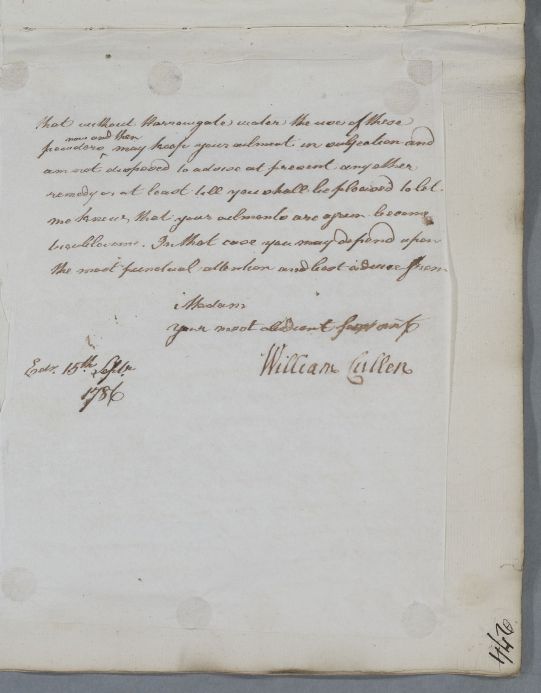 that without Harrowgate water the use of these
now and then
powders ^ may keep your ailment in subjection and
am not disposed to advise at present any other
remedy at least till you shall be pleased to let
me know that your ailments are again become
troublesome. In that case you may depend upon
the most punctual attention and best advice from
Madam
your most obedient servant
William Cullen
Edr. 15th Septr.
1786